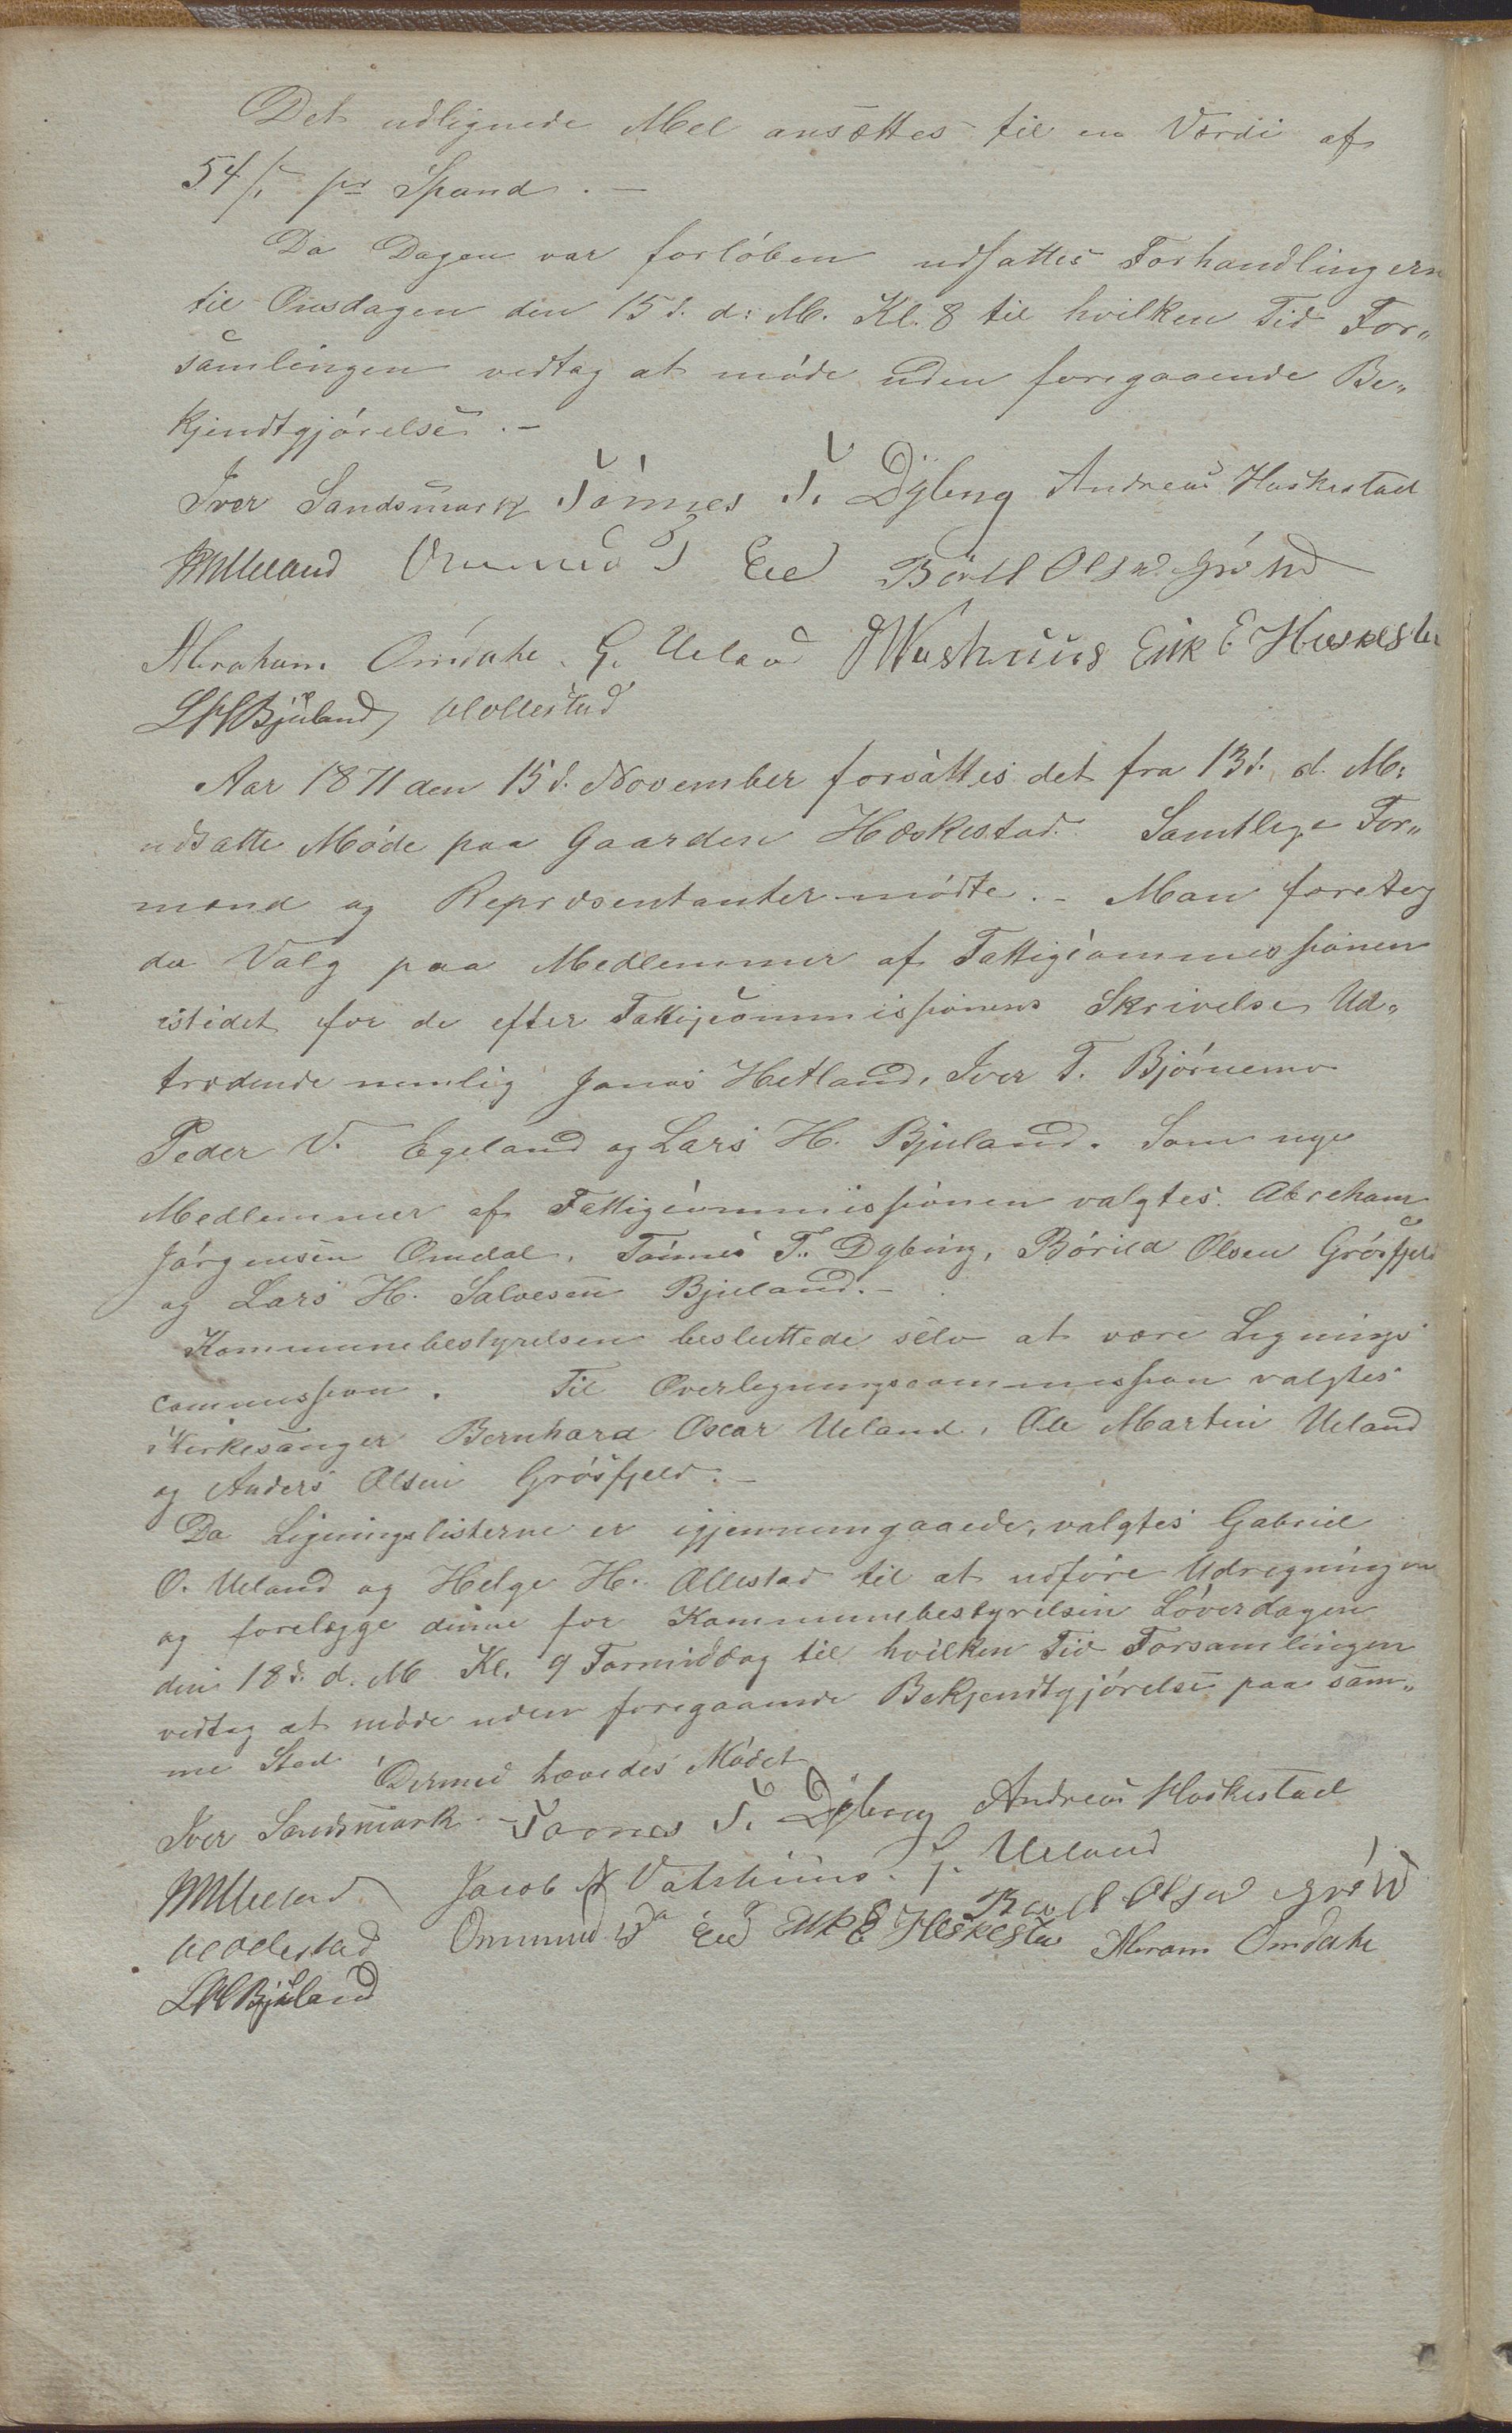 Det udlignede Mel ansættes til en Værdi af
54 /ß pr Spand. —
Da Dagen var forløben udsattes Forhandlingerne
til Onsdagen den 15d. d: M. Kl. 8 til hvilken Tid For„
samlingen vedtog at møde uden foregaaende Be„
kjendtgjørelse. —
Iver Sandsmark Tønnes T. Dybing Andreas Hæskestad
Ommund Eie Børild Olsen
Abraham Omdahl. G. Ueland Erik E Heskestad
LHSBjuland
Aar 1871 den 15d. November forsattes det fra 13d. d. M:
udsatte Møde paa Gaarden Hæskestad. Samtlige For„
mænd og Repræsentanter mødte. – Man foretog
da Valg paa Medlemmer af Fattigcommissionen
istedet for de efter Fattigcommissionens Skrivelse Ud„
trædende nemlig Jonas Hetland, Iver T. Bjørnemo
Peder V. Egeland og Lars H. Bjuland. Som nye
Medlemmer af Fattigcommissionen valgtes. Abreham
Jørgensen Omdal, Tønnes T. Dybing, Børild Olsen Grøsfjeld
og Lars H. Salvesen Bjuland. –
Kommunebestyrelsen besluttede selv at være Lignings
commission. Til Overligningscommission valgtes
Kirkesanger Bernhard Oscar Ueland, Ole Martin Ueland
og Anders Olsen Grøsfjeld. –
Da Ligningslisterne er igjennemgaaede, valgtes Gabriel
O. Ueland og Helge H. Ollestad til at udføre Udregningen
og forelægge denne for Kommunebestyrelsen Løverdagen
den 18d. d. M. Kl. 9 Formiddag til hvilken Tid Forsamlingen
vedtog at møde uden foregaaende Bekjendtgjørelse paa sam„
me Sted Dermed hævedes Mødet
Iver Sandsmark Tønnes T. Dybing Andreas Hæskestad
Jacob Vatshuus. G. Ueland
Ommund Eie Erik E Heskestad Børild Olsen Abram Omdahl
LHSBjuland